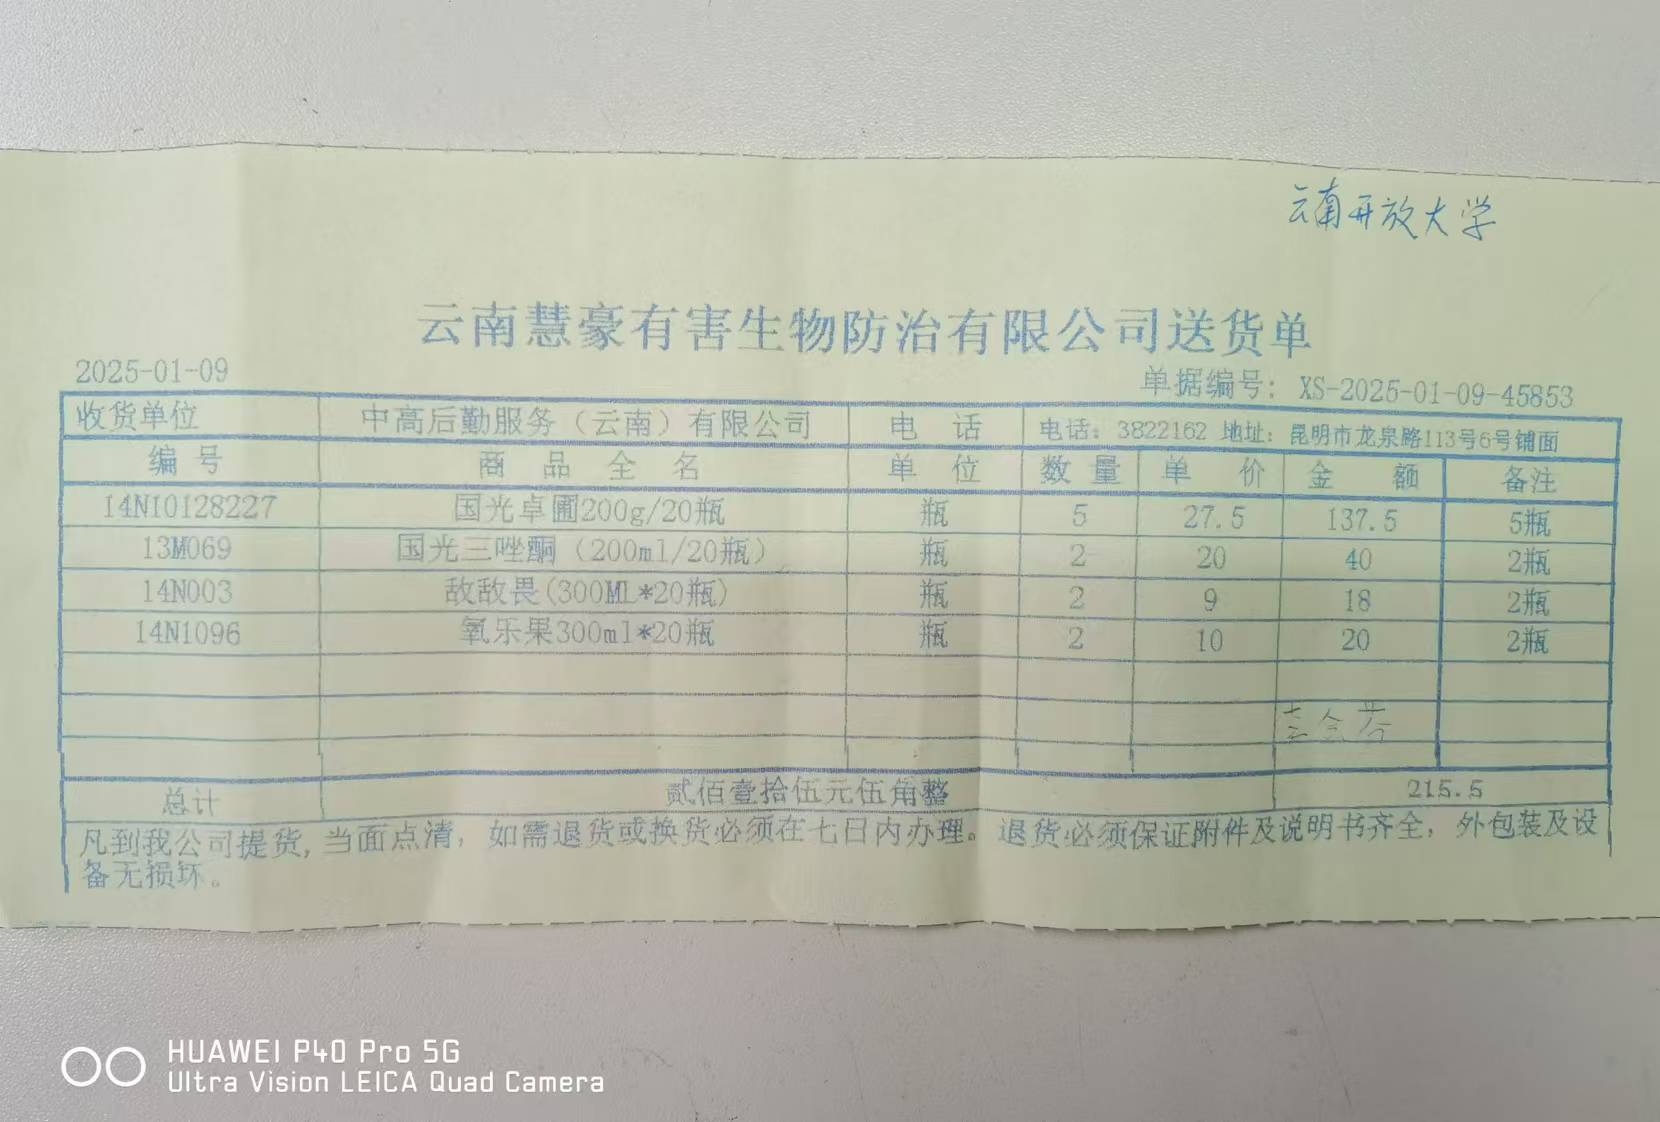 云南开放大学
云南慧豪有害生物防治有限公司送货单
2025-01-09
单据编号: XS-2025-01-09-45853
收货单位 中高后勤服务（云南）有限公司 电 话 电话: 3822162 地址: 昆明市龙泉路113号6号铺面
编 号 商 品 全 名 单 位 数 量 单 价 金 额 备注
14N10128227 国光卓圃200g/20瓶 瓶 5 27.5 137.5 5瓶
13M069 国光三唑酮（200ml/20瓶） 瓶 2 20 40 2瓶
14N003 敌敌畏(300ML*20瓶) 瓶 2 9 18 2瓶
14N1096 氧乐果300ml*20瓶 瓶 2 10 20 2瓶
总计 贰佰壹拾伍元伍角整 215.5
凡到我公司提货, 当面点清，如需退货或换货必须在七日内办理。退货必须保证附件及说明书齐全，外包装及设
备无损坏。
HUAWEI P40 Pro 5G
Ultra Vision LEICA Quad Camera